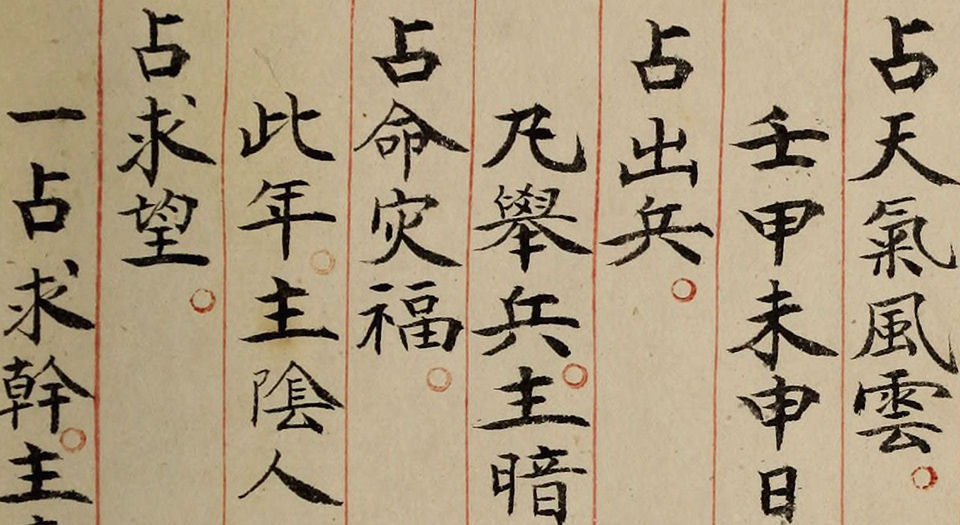 占天氣風雲。
壬甲未申日
占出兵。
凡舉兵。主暗
占命灾福。
此年。主陰人
占求望。
一占求幹。主